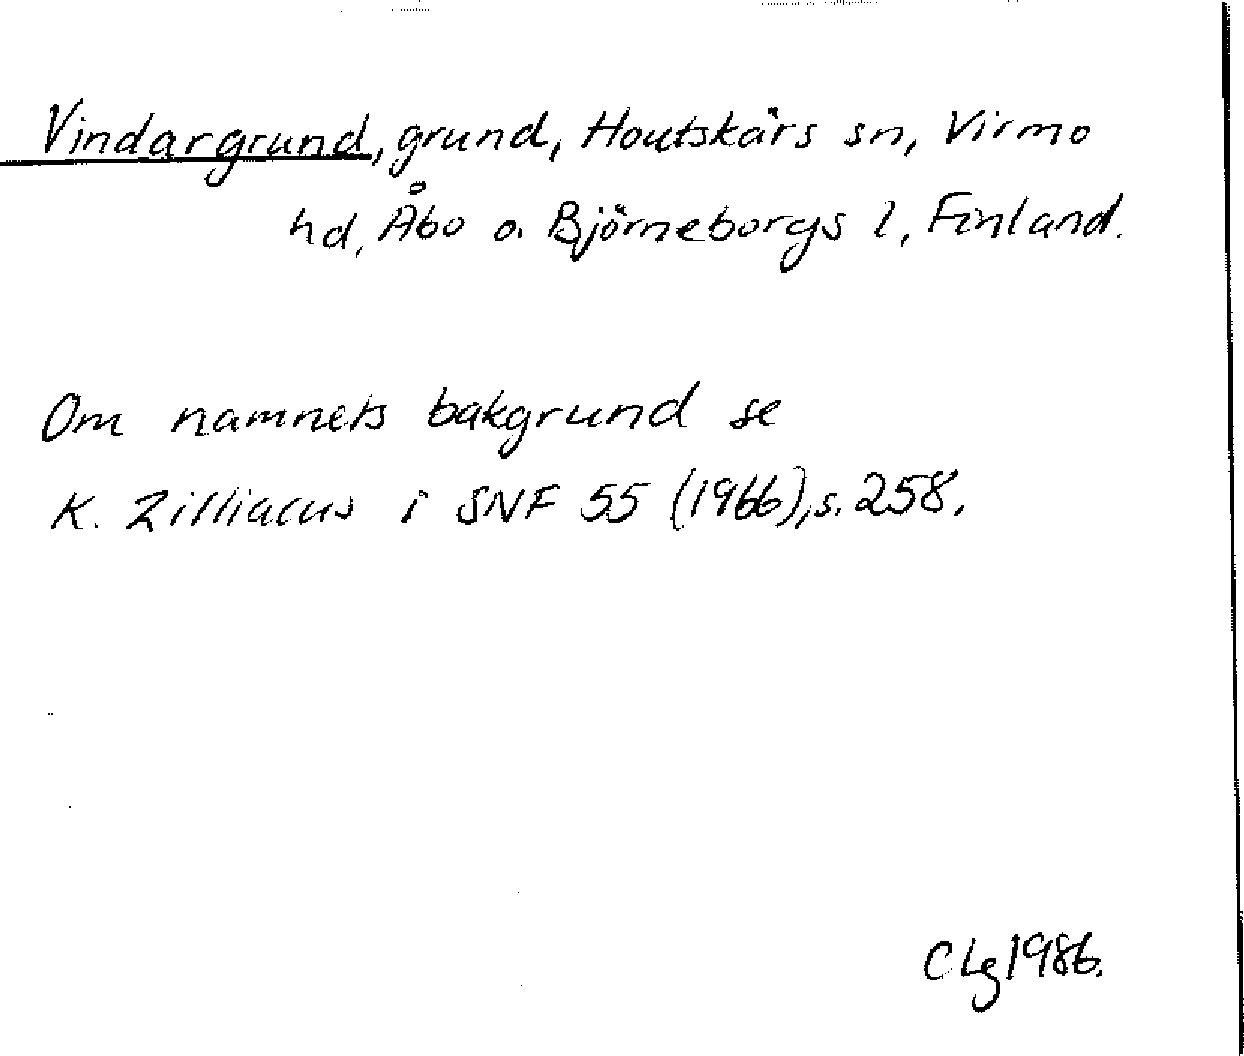 Vindargrund, grund, Houtskärs sn, Virmo
hd, Åbo o. Björneborgs l, Finland.
Om namnets bakgrund se
K. Zilliacus i SNF 55 (1966), s. 258.
CLg 1986.